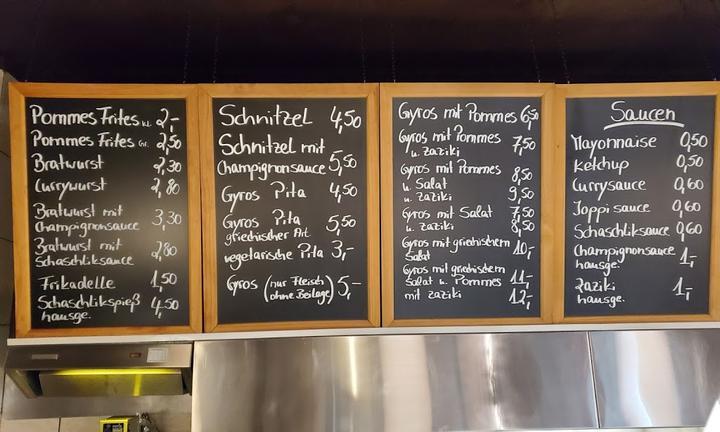 Pommes Frites Kl. 2,-
Pommes Frites Gr. 2,50
Bratwurst 2,30
Currywurst 2,80
Bratwurst mit
Champignonsauce 3,30
Bratwurst mit
Schaschliksauce 2,80
Frikadelle 1,50
Schaschlikspieß 4,50
hausge.
Schnitzel 4,50
Schnitzel mit
Champignonsauce 5,50
Gyros Pita 4,50
Gyros Pita 5,50
griechischer Art
vegetarische Pita 3,-
Gyros (nur Fleisch
ohne Beilage) 5,-
Gyros mit Pommes 6,50
Gyros mit Pommes
u. Zaziki 7,50
Gyros mit Pommes
u. Salat 8,50
u. Zaziki 9,50
Gyros mit Salat 7,50
u. Zaziki 8,50
Gyros mit griechischem
Salat 10,-
Gyros mit griechischem
Salat u. Pommes 11,-
mit Zaziki 12,-
Saucen
Mayonnaise 0,50
Ketchup 0,50
Currysauce 0,60
Joppi sauce 0,60
Schaschliksauce 0,60
Champignonsauce
hausge. 1,-
Zaziki 1,-
hausge.